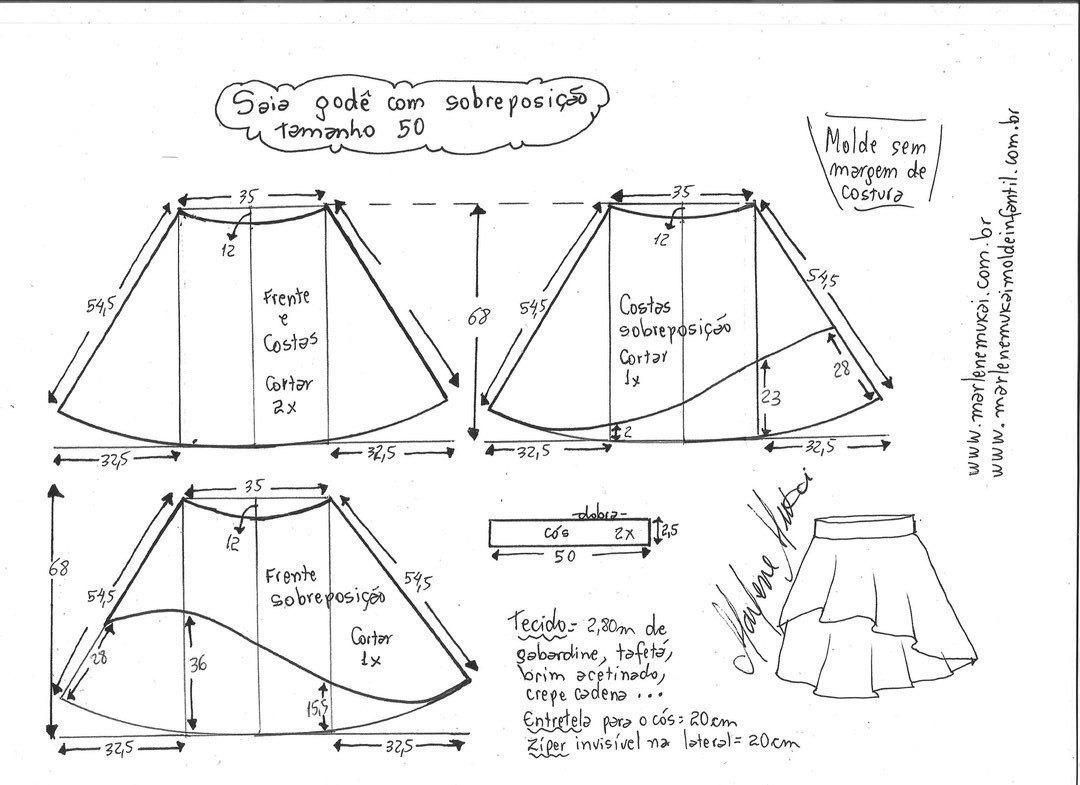 Saia godê com sobreposição
tamanho 50
Molde sem
margem de
costura
www.marlenemukai.com.br
www.marlenemukaimoldeinfantil.com.br
35
12
54,5
Frente
e
Costas
Cortar
2x
32,5
32,5
68
35
12
54,5
54,5
Costas
sobreposição
Cortar
1x
28
23
2
32,5
32,5
35
12
68
54,5
54,5
Frente
sobreposição
Cortar
1x
28
36
15,5
32,5
32,5
dobra
cós 2x
2,5
50
Marlene Mukai
Tecido= 2,80m de
gabardine, tafetá,
brim acetinado,
crepe cadena ...
Entretela para o cós= 20cm
Zíper invisível na lateral= 20cm